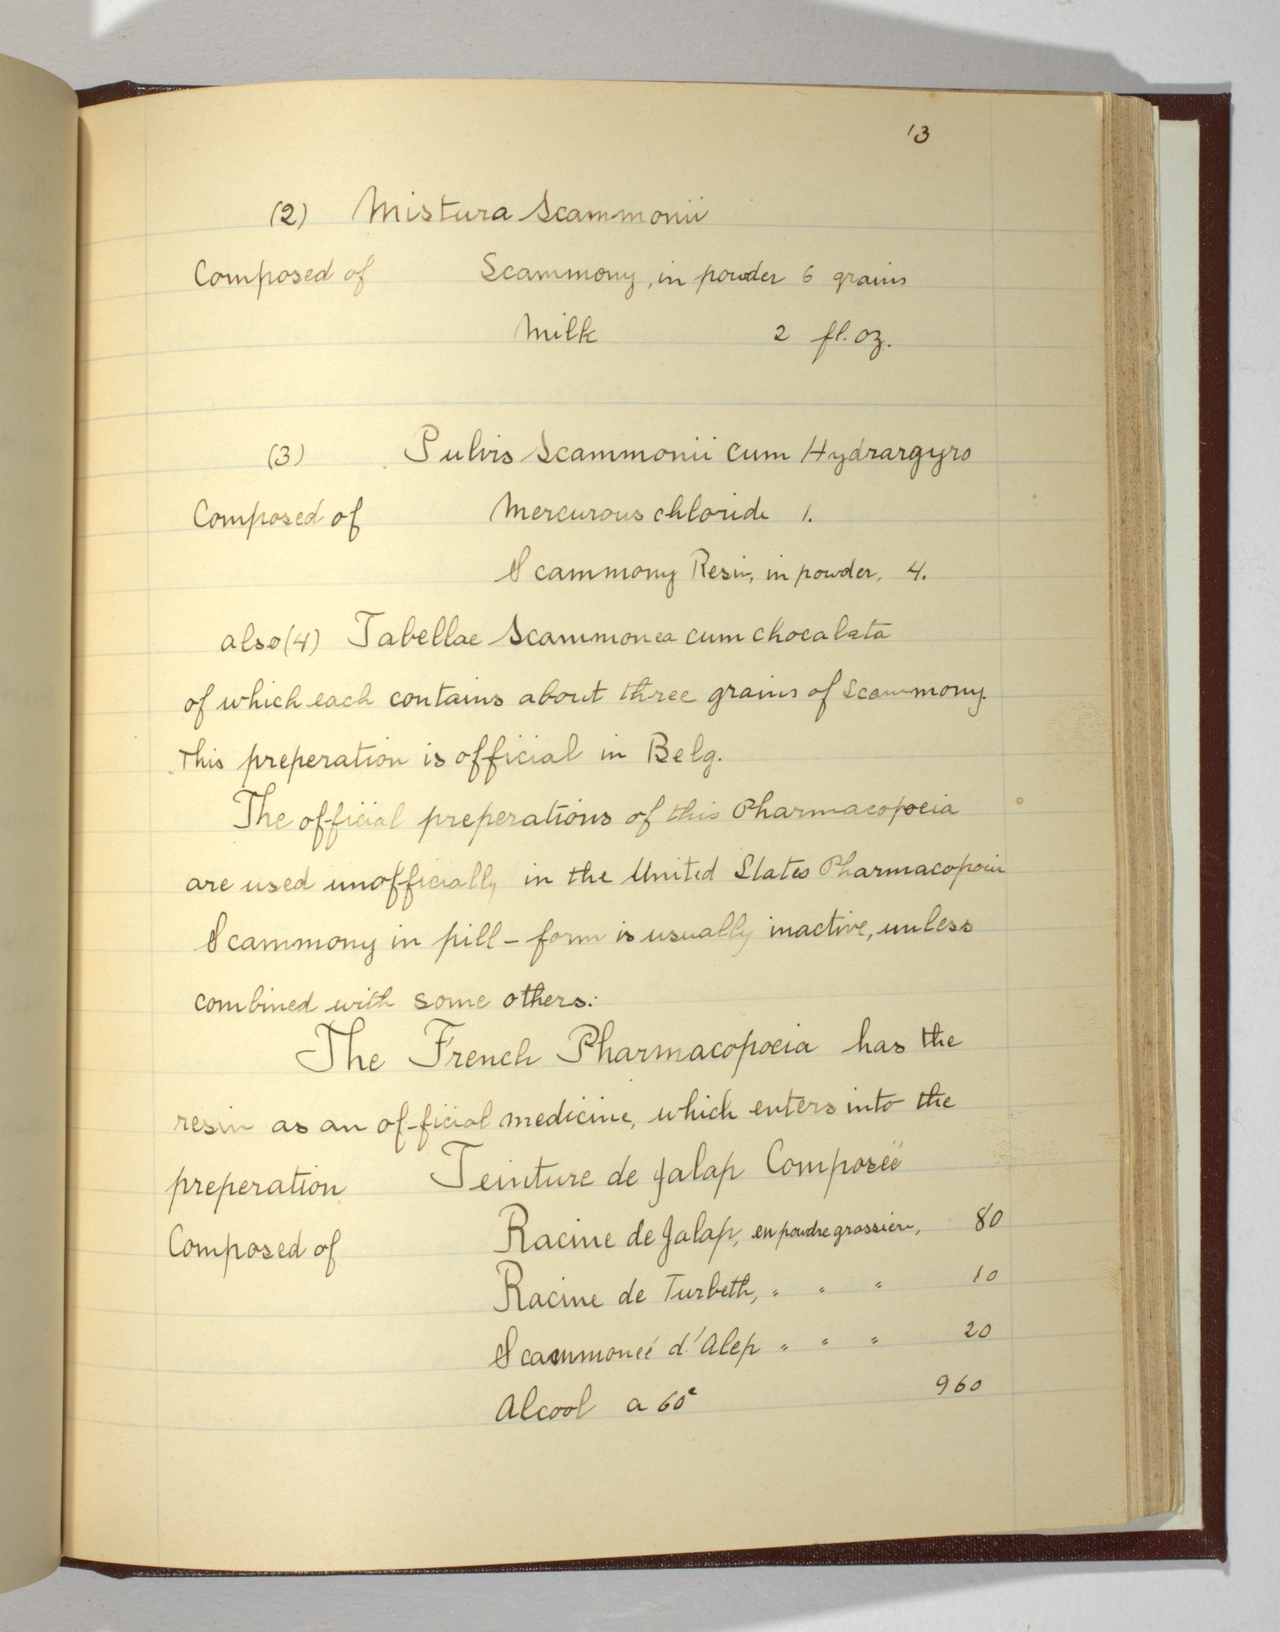 13
(2) Mistura Scammonii
Composed of Scammony, in powder 6 grains
Milk 2 fl. oz.
(3) Pulvis Scammonii cum Hydrargyro
Composed of Mercurous chloride 1.
Scammony Resin, in powder, 4.
also (4) Tabellae Scammonea cum chocalata
of which each contains about three grains of scammony.
This preperation is official in Belg.
The official preperations of this Pharmacopoeia
are used unofficially in the United States Pharmacopoeia
Scammony in pill-form is usually inactive, unless
combined with some others.
The French Pharmacopoeia has the
resin as an official medicine, which enters into the
preperation Teinture de Jalap Composeé
Composed of Racine de Jalap, en poudre grossiere, 80
Racine de Turbeth, " " " 10
Scammoneé d'Alep " " " 20
Alcool a 60° 960